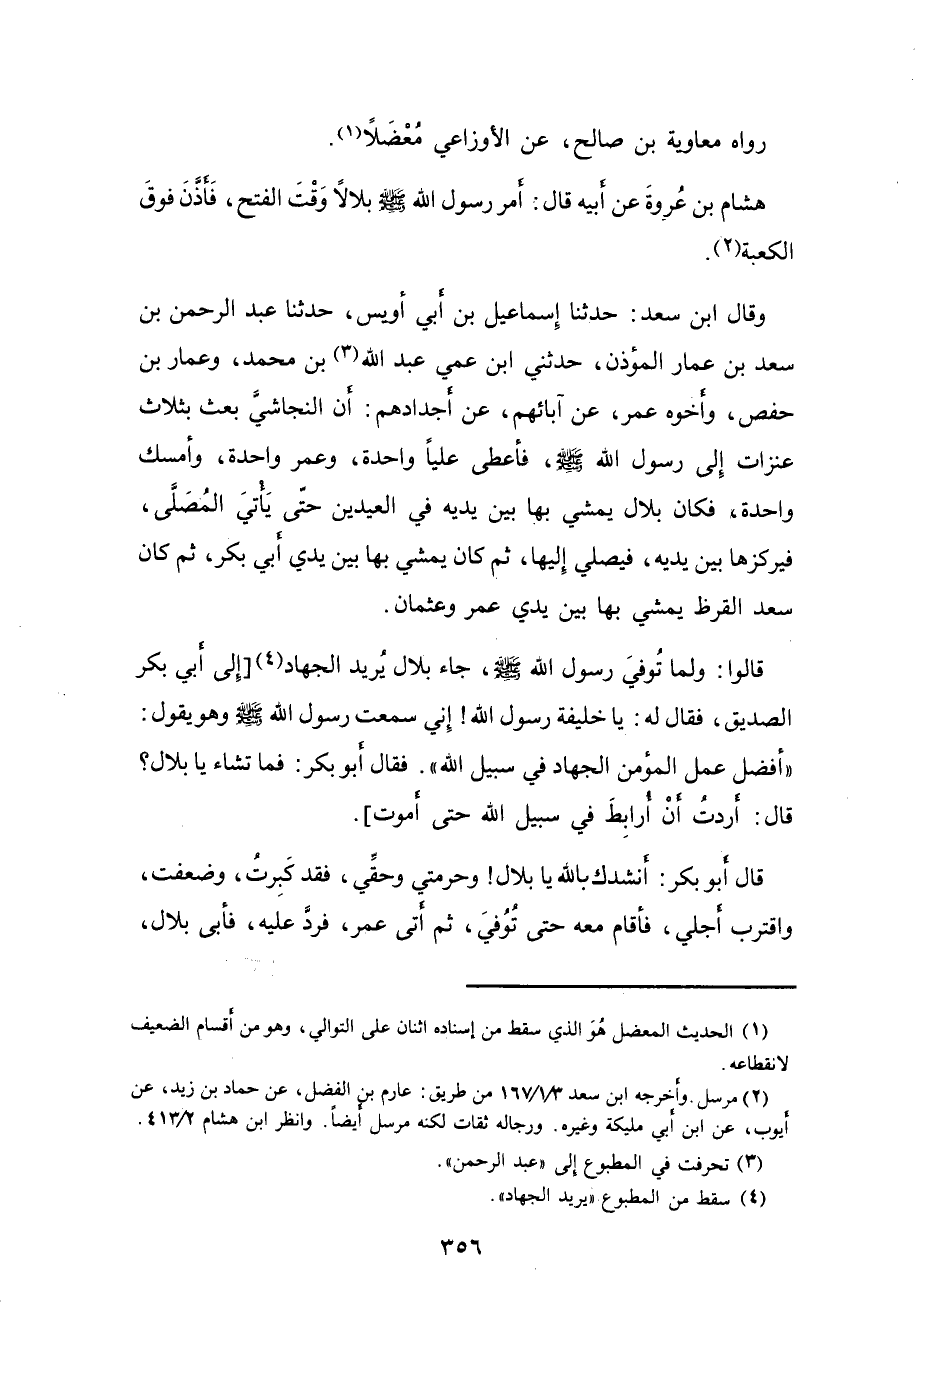 رواه معاوية بن صالح، عن الأوزاعي مُعْضَلًا(١).
هشام بن عُروةَ عن أَبيه قال: أَمر رسول الله ﷺ بلالاً وَقْتَ الفتح، فَأَذَّنَ فوقَ
الكعبة(٢).
وقال ابن سعد: حدثنا إِسماعيل بن أَبي أويس، حدثنا عبد الرحمن بن
سعد بن عمار المؤذن، حدثني ابن عمي عبد الله(٣) بن محمد، وعمار بن
حفص، وأَخوه عمر، عن آبائهم، عن أَجدادهم: أَن النجاشيَّ بعث بثلاث
عنزات إِلى رسول الله ﷺ، فأعطى علياً واحدة، وعمر واحدة، وأمسك
واحدة، فكان بلال يمشي بها بين يديه في العيدين حتّى يَأْتيَ المُصَلَّى،
فيركزها بين يديه، فيصلي إِليها، ثم كان يمشي بها بين يدي أَبي بكر، ثم كان
سعد القرظ يمشي بها بين يدي عمر وعثمان.
قالوا: ولما تُوفيَ رسول الله ﷺ، جاء بلال يُريد الجهاد(٤)[إِلى أَبي بكر
الصديق، فقال له: يا خليفة رسول الله! إِني سمعت رسول الله ﷺ وهو يقول:
«أفضل عمل المؤمن الجهاد في سبيل الله». فقال أَبو بكر: فما تشاء يا بلال؟
قال: أَردتُ أَنْ أُرابِطَ في سبيل الله حتى أَموت].
قال أَبو بكر: أَنشدك بالله يا بلال! وحرمتي وحقِّي، فقد كَبِرتُ، وضعفت،
واقترب أَجلي، فأقام معه حتى تُوُفيَ، ثم أَتى عمر، فردَّ عليه، فأبى بلال،
(١) الحديث المعضل هُوَ الذي سقط من إسناده اثنان على التوالي، وهو من أَقسام الضعيف
لانقطاعه.
(٢) مرسل. وأَخرجه ابن سعد ١٦٧/١/٣ من طريق: عارم بن الفضل، عن حماد بن زيد، عن
أيوب، عن ابن أَبي مليكة وغيره. ورجاله ثقات لكنه مرسل أَيضاً. وانظر ابن هشام ٤١٣/٢.
(٣) تحرفت في المطبوع إِلى «عبد الرحمن».
(٤) سقط من المطبوع «يريد الجهاد».
٣٥٦